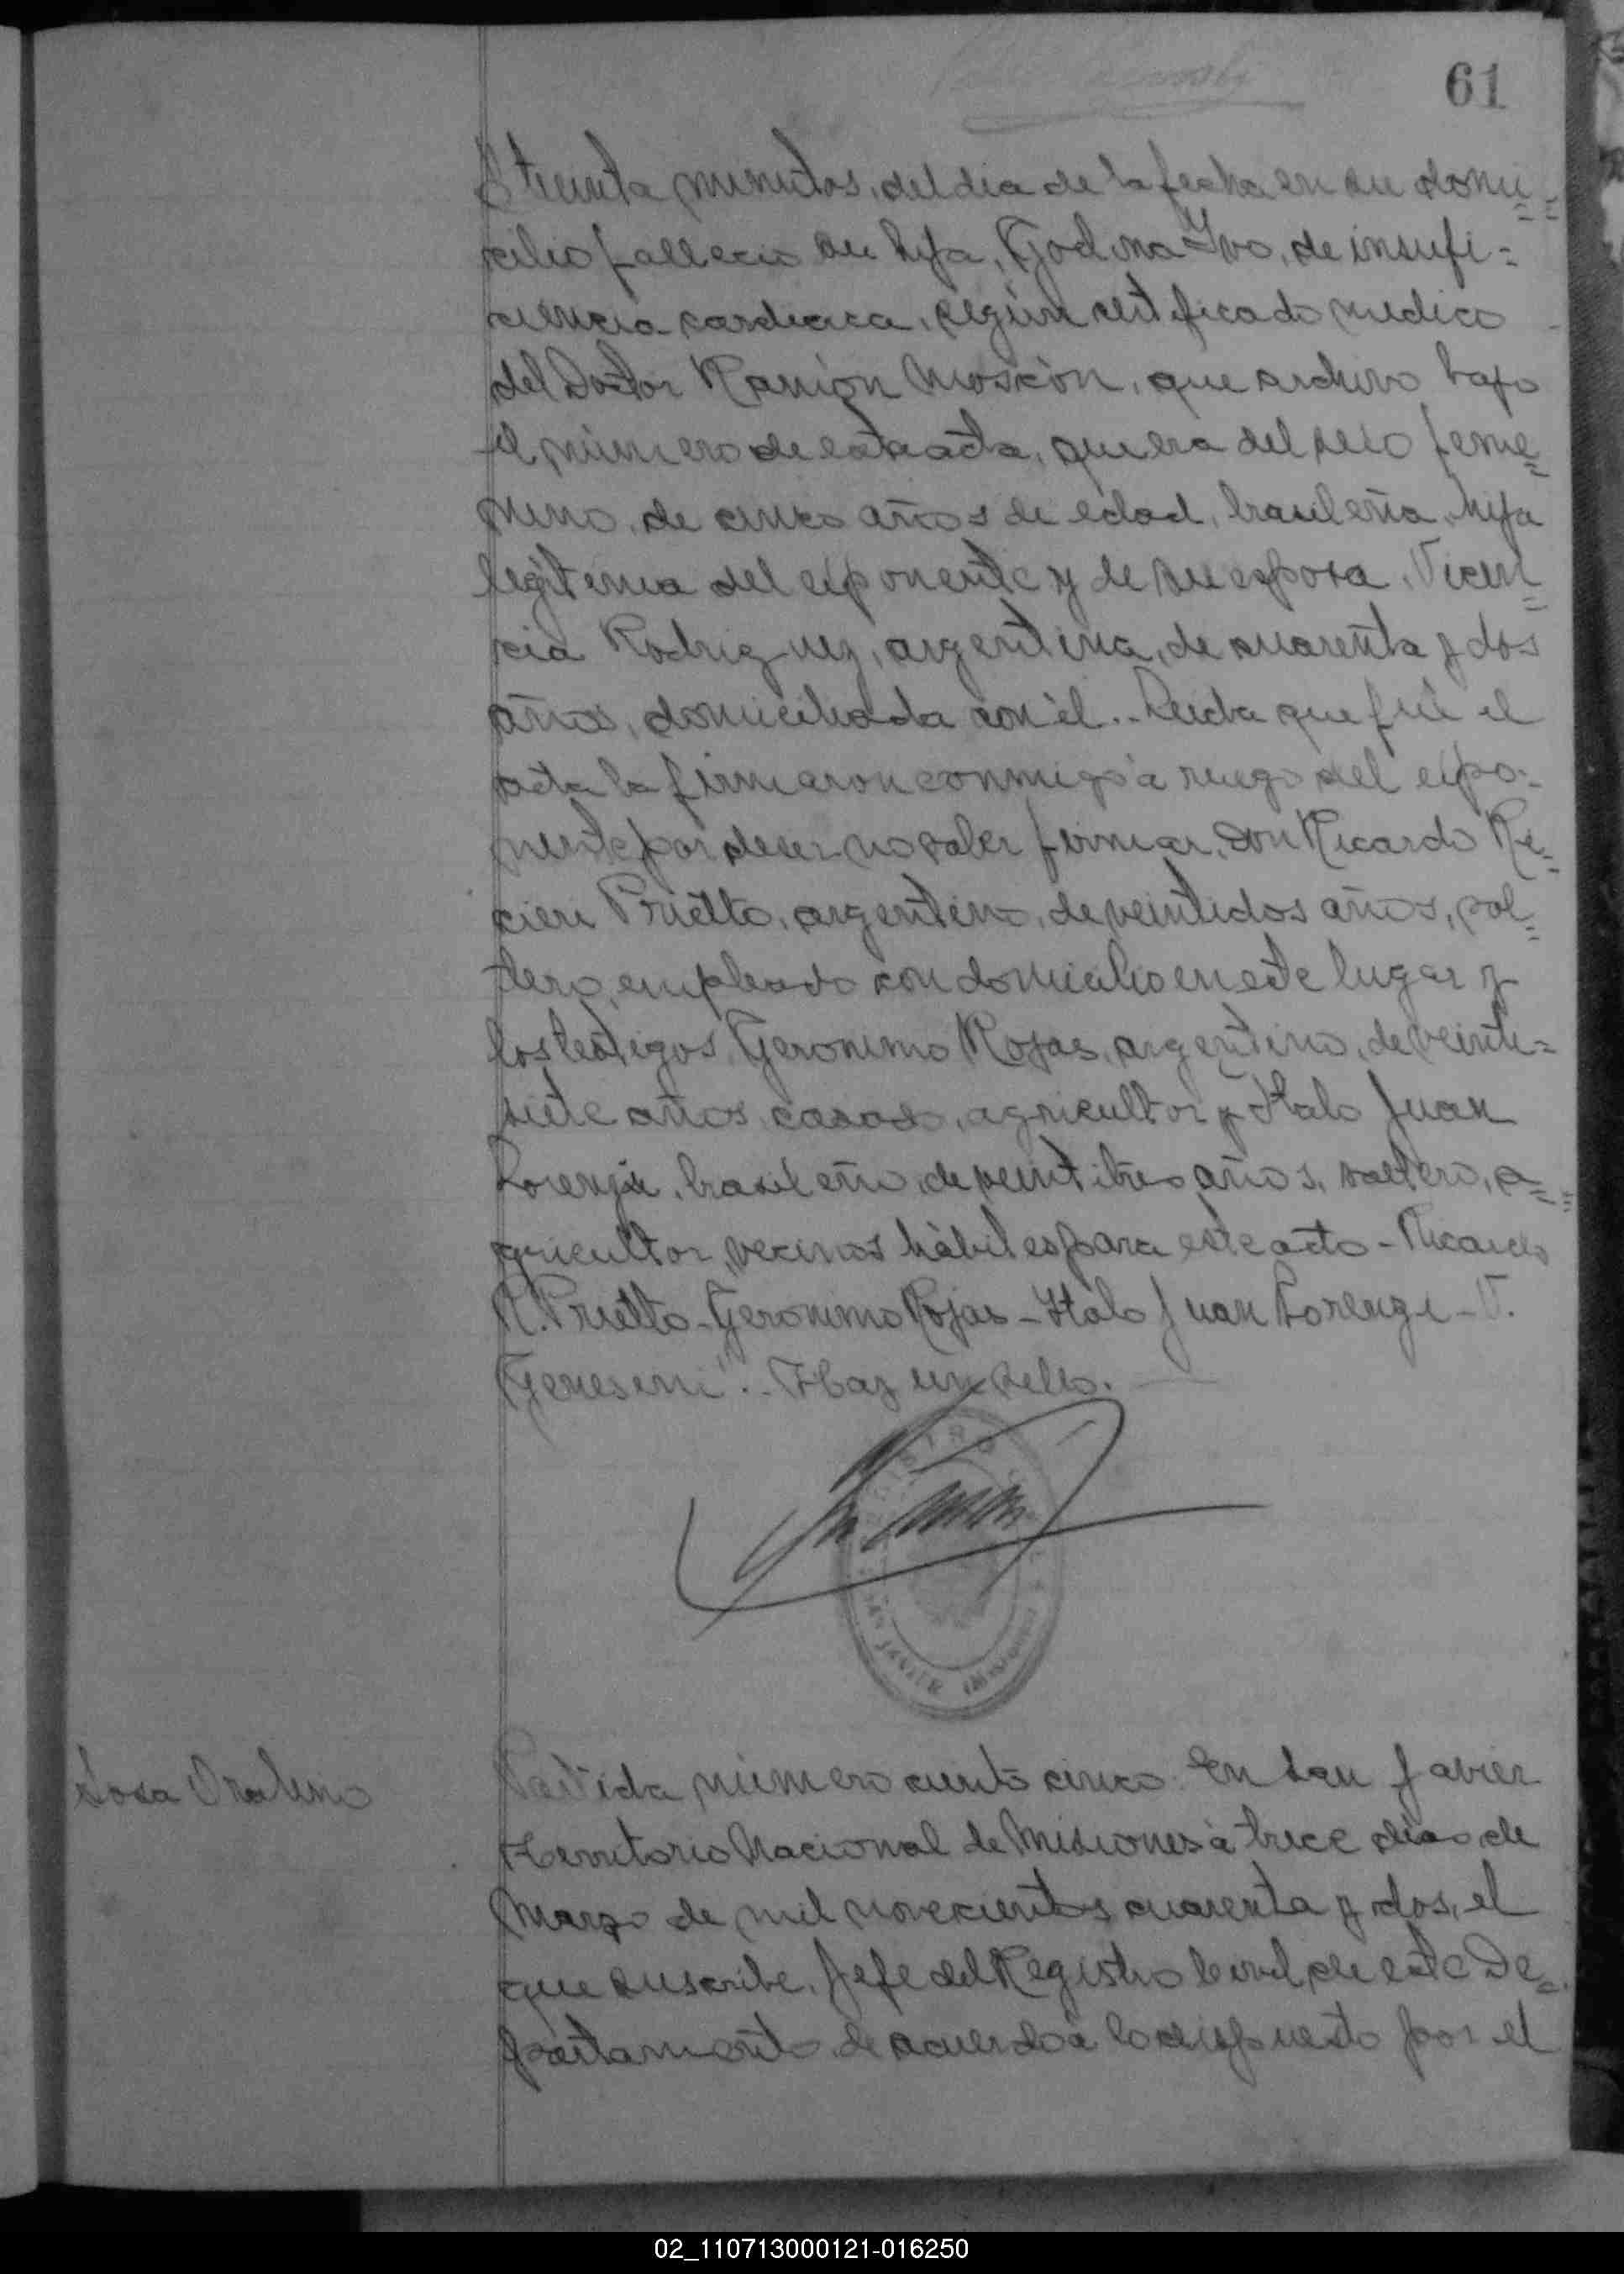 61
y treinta minutos, del dia de la fecha en su domi=
cilio fallecio su hija, Godina Ivo, de insufi=
ciencia cardiaca, según certificado medico
del Doctor Ramón Moscón, que archivo bajo
el número de esta acta, que era del sexo feme=
nino, de cinco años de edad, brasileña, hija
legitima del exponente y de su esposa, Vicen=
cia Rodriguez, argentina, de cuarenta y dos
años, domiciliada con él.. Leida que fué el
acta la firmaron conmigo á ruego del expo=
nente por decir no saber firmar, don Ricardo Re=
cieri Prietto, argentino, de veintidos años, sol=
tero, empleado con domicilio en este lugar y
los testigos, Geronimo Rojas, argentino, de veinti=
siete años, casado, agricultor y Italo Juan
Lorenzi, brasileño, de veintitres años, soltero, a=
gricultor, vecinos hábiles para este acto - Ricardo
R. Prietto - Geronimo Rojas - Italo Juan Lorenzi - V.
Genesini".. Hay un sello.
REGISTRO CIVIL
SAN JAVIER (MISIONES)
Sosa Oralino
Partida número ciento cinco. En San Javier
Territorio Nacional de Misiones á trece dias de
Marzo de mil novecientos cuarenta y dos, el
que suscribe, Jefe del Registro Civil de este De=
partamento de acuerdo á lo dispuesto por el
02_110713000121-016250